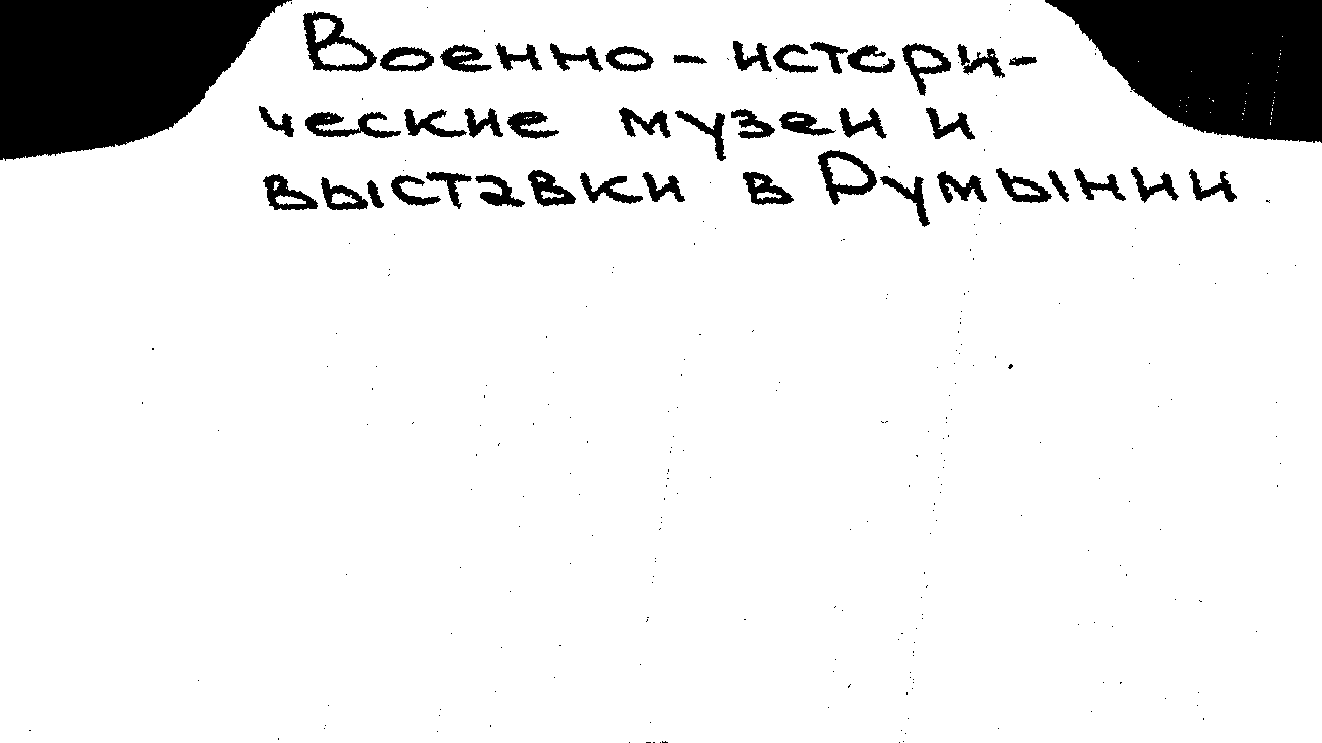 Военно-истори-
ческие музеи и
выставки в Румынии